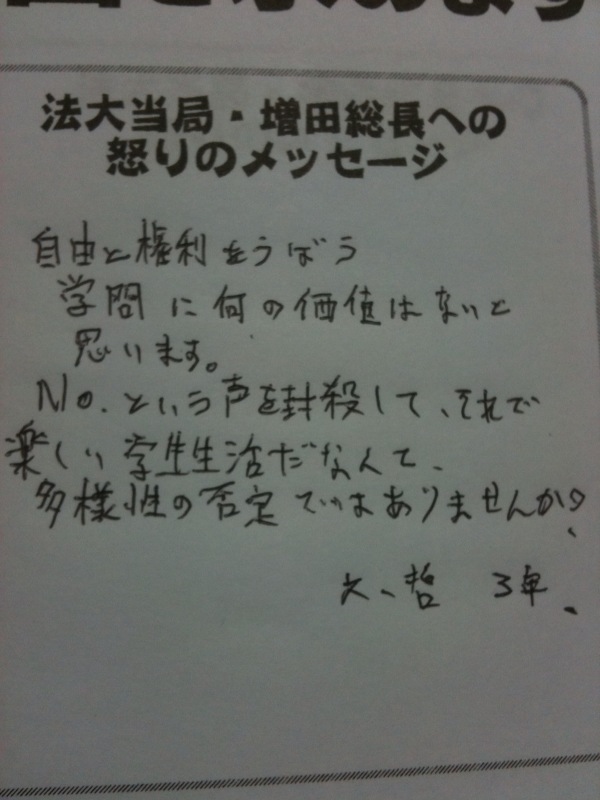 回を求めます
法大当局・増田総長への
怒りのメッセージ
自由と権利をうばう
学問に何の価値はないと
思います。
No.という声を封殺して、それで
楽しい学生生活だなんて、
多様性の否定ではありませんか?
文、哲 3年、